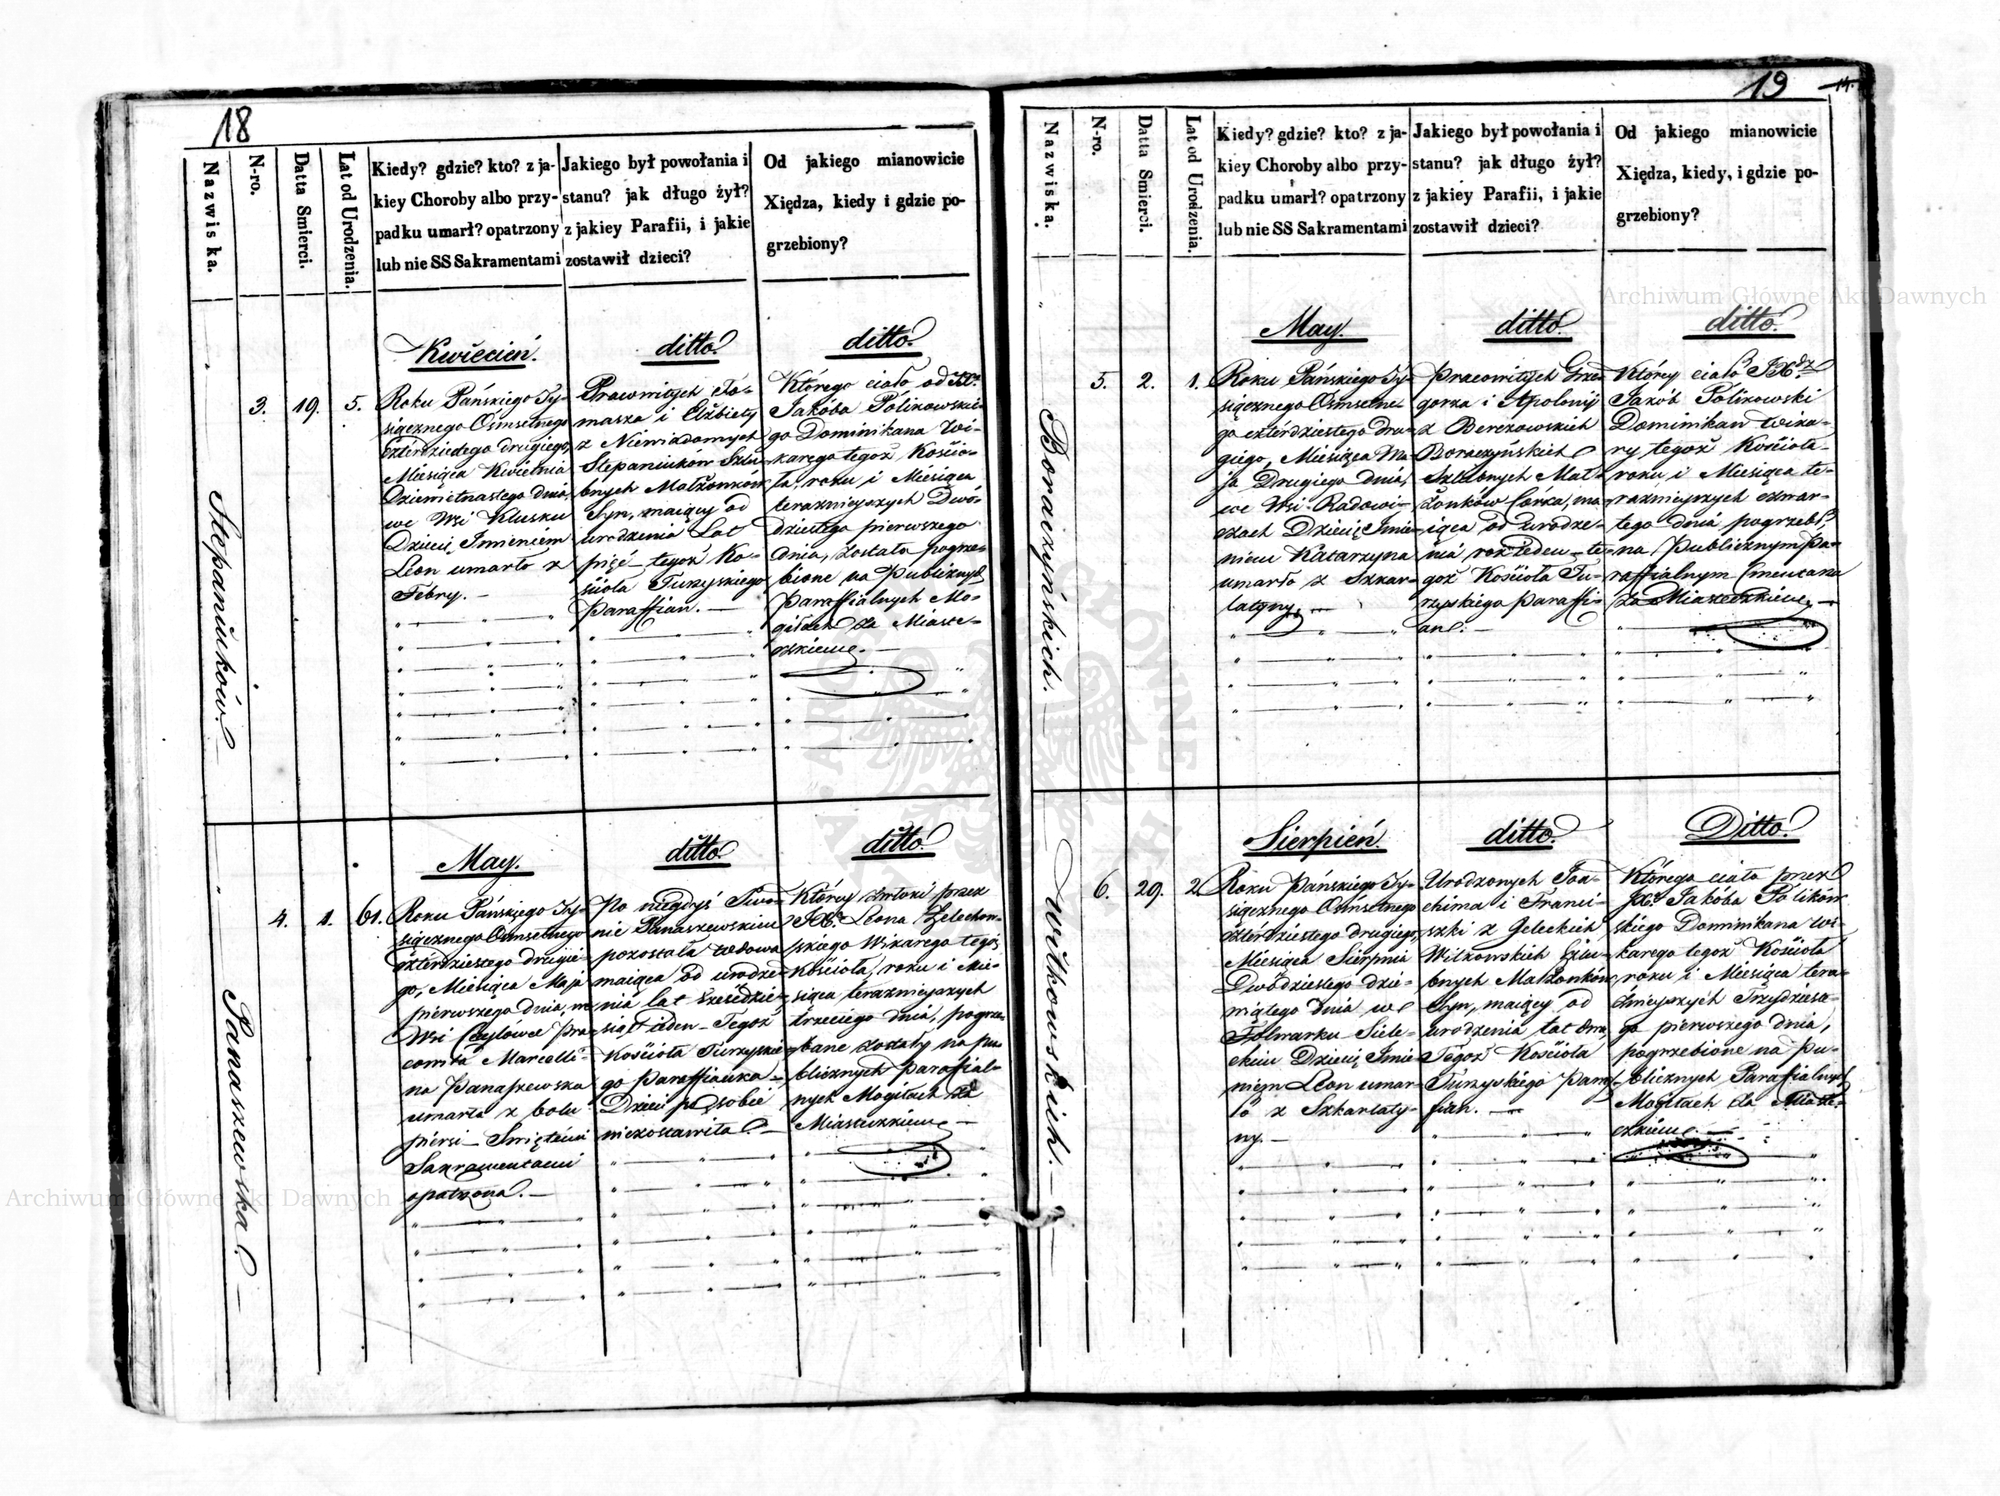 18
Nazwiska.
N-ro.
Datta Smierci.
Lat od Urodzenia.
Kiedy? gdzie? kto? z ja-
kiey Choroby albo przy-
padku umarł? opatrzony
lub nie SS Sakramentami
Jakiego był powołania i
stanu? jak długo żył?
z jakiey Parafii, i jakie
zostawił dzieci?
Od jakiego mianowicie
Xiędza, kiedy i gdzie po-
grzebiony?
Stepaniuków
3.
19.
5.
Kwiecień.
Roku Pańskiego Ty-
siącznego Ośmsetnego
czterdziestego drugiego,
Miesiąca Kwietnia
Dziewietnastego dnia,
we Wsi Klusku
Dziecie Imieniem
Leon umarło z
Febry. -
ditto.
Pracowitych To-
masza i Elżbiety
z Niewiadomych
Stepaniuków Szlu-
bnych Małżonków
Syn, maiący od
urodzenia Lat
pięć - tegoż Ko-
ścioła Turzyskiego
Paraffian. -
ditto.
Którego ciało od
Jakóba Polikowskie-
go Dominikana Wi-
karego tegoż Kościo-
ła, roku i Miesiąca
teraznieyszych Dwó-
dziestego pierwszego
dnia, zostało pogrze-
bione na Publicznych
Paraffialnych Mo-
giłach za Miaste-
czkiem. -
Panaszewska. -
4.
1.
61.
May.
Roku Pańskiego Ty-
siącznego Osmsetnego
czterdziestego drugie-
go, Miesiąca Maja
pierwszego dnia, we
Wsi Pra-
cowita Marcelli-
na Panaszewska
umarła z bolu
piersi - Swiętemi
Sakramentami
opatrzona. -
ditto.
Po niegdyś Siwo-
nie Panaszewskim
pozostała wdowa
maiąca od urodze-
nia lat sześćdzie-
siąt ieden - Tegoż
Kościoła Turzyskie-
go Paraffianka -
Dzieci po sobie
niezostawiła. -
ditto.
Którey zwłoki przez
JX. Leona Żelechow-
skiego Wikarego tegoż
Kościoła, roku i Mie-
siąca teraznieyszych
trzeciego dnia, pogrze-
bane zostały na pu-
blicznych Paraffial-
nych Mogiłach za
Miasteczkiem -
19
14.
Nazwiska.
N-ro.
Datta Smierci.
Lat od Urodzenia.
Kiedy? gdzie? kto? z ja-
kiey Choroby albo przy-
padku umarł? opatrzony
lub nie SS Sakramentami
Jakiego był powołania i
stanu? jak długo żył?
z jakiey Parafii, i jakie
zostawił dzieci?
Od jakiego mianowicie
Xiędza, kiedy, i gdzie po-
grzebiony?
Boraczyńskich. -
5.
2.
1.
May.
Roku Pańskiego Ty-
siącznego Osmsetne-
go czterdziestego dru-
giego, Miesiąca Ma-
ja Drugiego dnia,
we Wsi Radowi-
czach Dziecię Imie-
niem Katarzyna
umarło z Szkar-
latyny. -
ditto.
Pracowitych Grze-
gorza i Apolonij
z Berezowskich
Boraczyńskich
Szlubnych Mał-
żonków Corka, ma-
iąca od urodze-
nia rok ieden - te-
goż Kościoła Tu-
rzyskiego Paraffi-
an. -
ditto.
Którey ciało JX
Jakób Polikowski
Dominikan Wika-
ry tegoż Kościoła
roku i Miesiąca te-
raznieyszych czwar-
tego dnia pogrzebł,
na Publicznym Pa-
raffialnym Cmentarzu
za Miasteczkiem. -
Witkowskich. -
6.
29.
2.
Sierpień.
Roku Pańskiego Ty-
siącznego Ośmsetnego
czterdziestego drugiego,
Miesiąca Sierpnia
Dwódziestego dzie-
wiątego dnia w
Folwarku Siele-
ckim Dziecię Imie-
niem Leon umar-
ło z Szkarlaty-
ny. -
ditto.
Urodzonych Joa-
chima i Franci-
szki z Geleckich
Witkowskich Szlu-
bnych Małżonków
Syn, maiący od
urodzenia lat dwa,
Tegoż Kościoła
Turzyskiego Paraf-
fian. -
Ditto.
Którego ciało przez
JX. Jakóba Polikow-
skiego Dominikana Wi-
karego tegoż Kościoła
roku i Miesiąca tera-
źnieyszych Trzydzieste-
go pierwszego dnia,
pogrzebione na Pu-
blicznych Paraffialnych
Mogiłach za Miaste-
czkiem. -
Archiwum Główne Akt Dawnych
Archiwum Główne Akt Dawnych